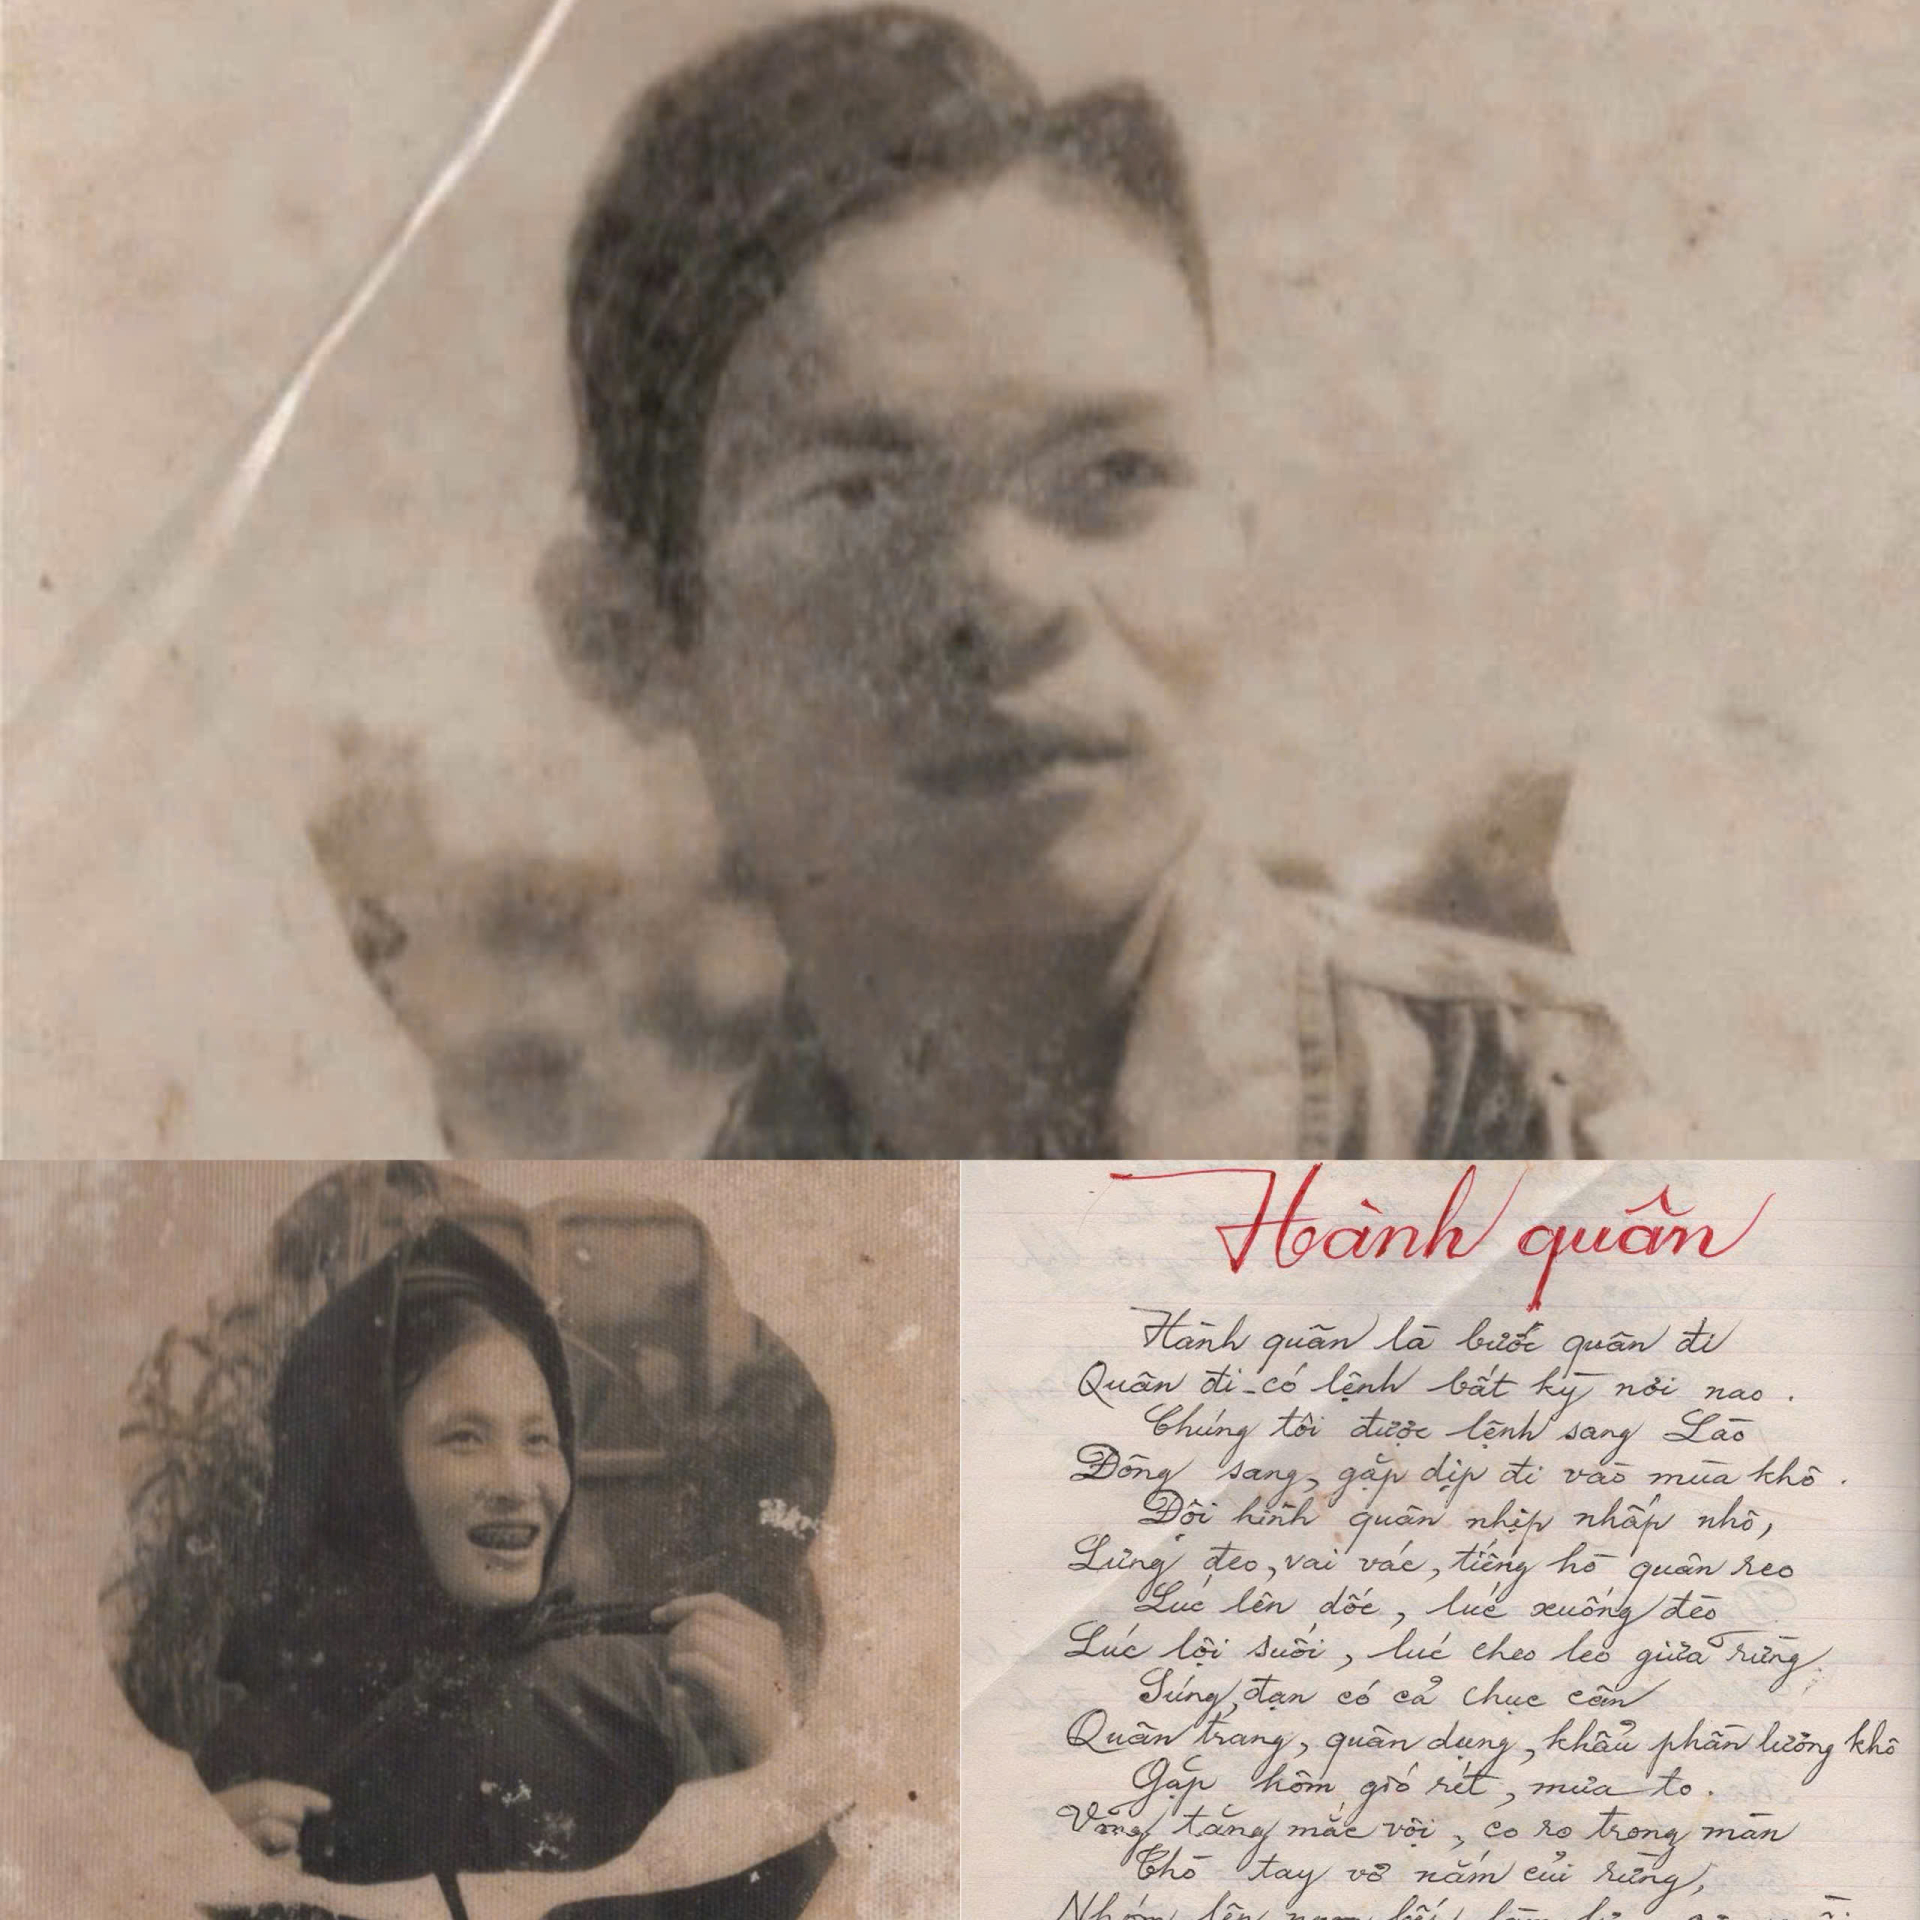 Hành quân
Hành quân là bước quân đi
Quân đi - có lệnh bất kỳ nơi nao .
Chúng tôi được lệnh sang Lào
Đông sang, gặp dịp đi vào mùa khô .
Đội hình quân nhịp nhấp nhô,
Lưng đeo, vai vác, tiếng hò quân reo
Lúc lên dốc, lúc xuống đèo
Lúc lội suối, lúc cheo leo giữa rừng.
Súng, đạn có cả chục cân
Quân trang, quân dụng, khẩu phần lương khô
Gặp hôm gió rét, mưa to.
Võng tăng mắc vội, co ro trong màn
Thò tay vơ nắm củi rừng,
Nhóm lên